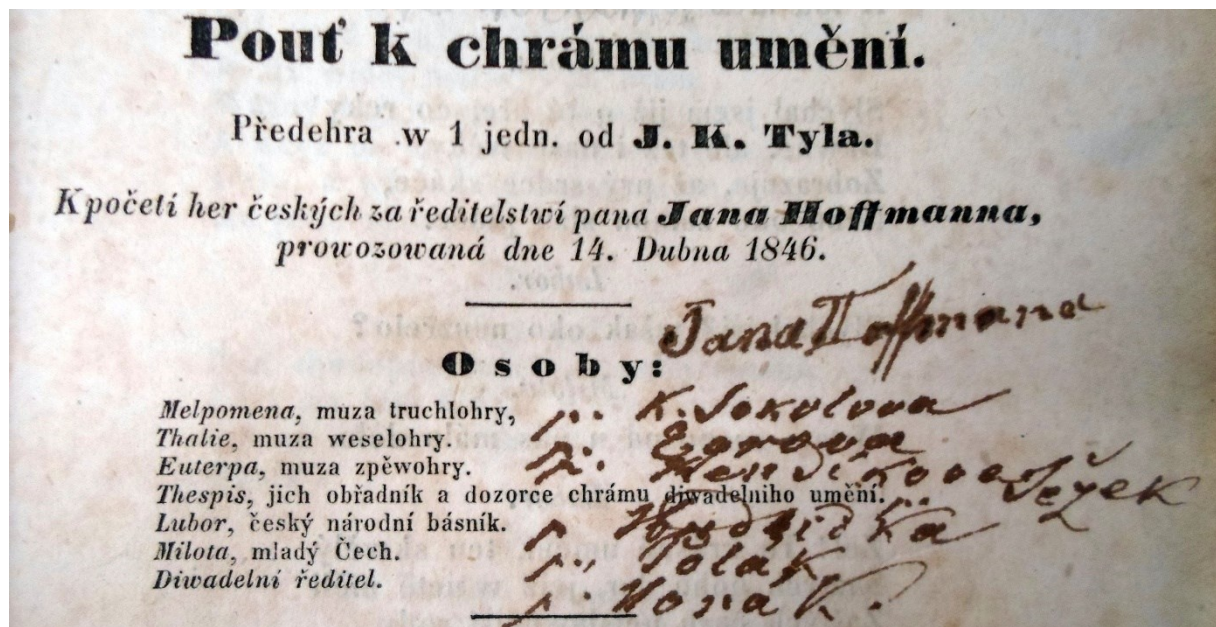 Pouť k chrámu umění.
Předehra w 1 jedn. od J. K. Tyla.
K početí her českých za ředitelstwí pana Jana Hoffmanna,
prowozowaná dne 14. Dubna 1846.
Jana Hoffmana
Osoby:
Melpomena, muza truchlohry, p. K. Sokolova
Thalie, muza weselohry. p.
Euterpa, muza zpěwohry. p.
Thespis, jich obřadník a dozorce chrámu diwadelního umění. Ježek
Lubor, český národní básník. p.
Milota, mladý Čech. p. Polák
Diwadelní ředitel. p. Horak.